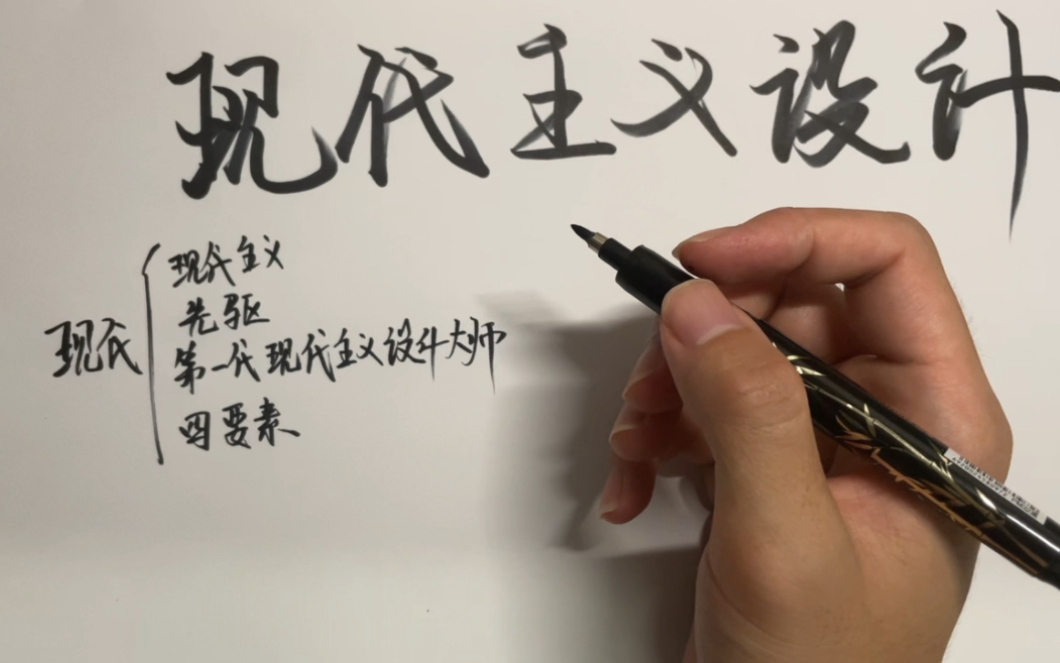 现代主义设计
现代
现代主义
先驱
第一代现代主义设计大师
四要素